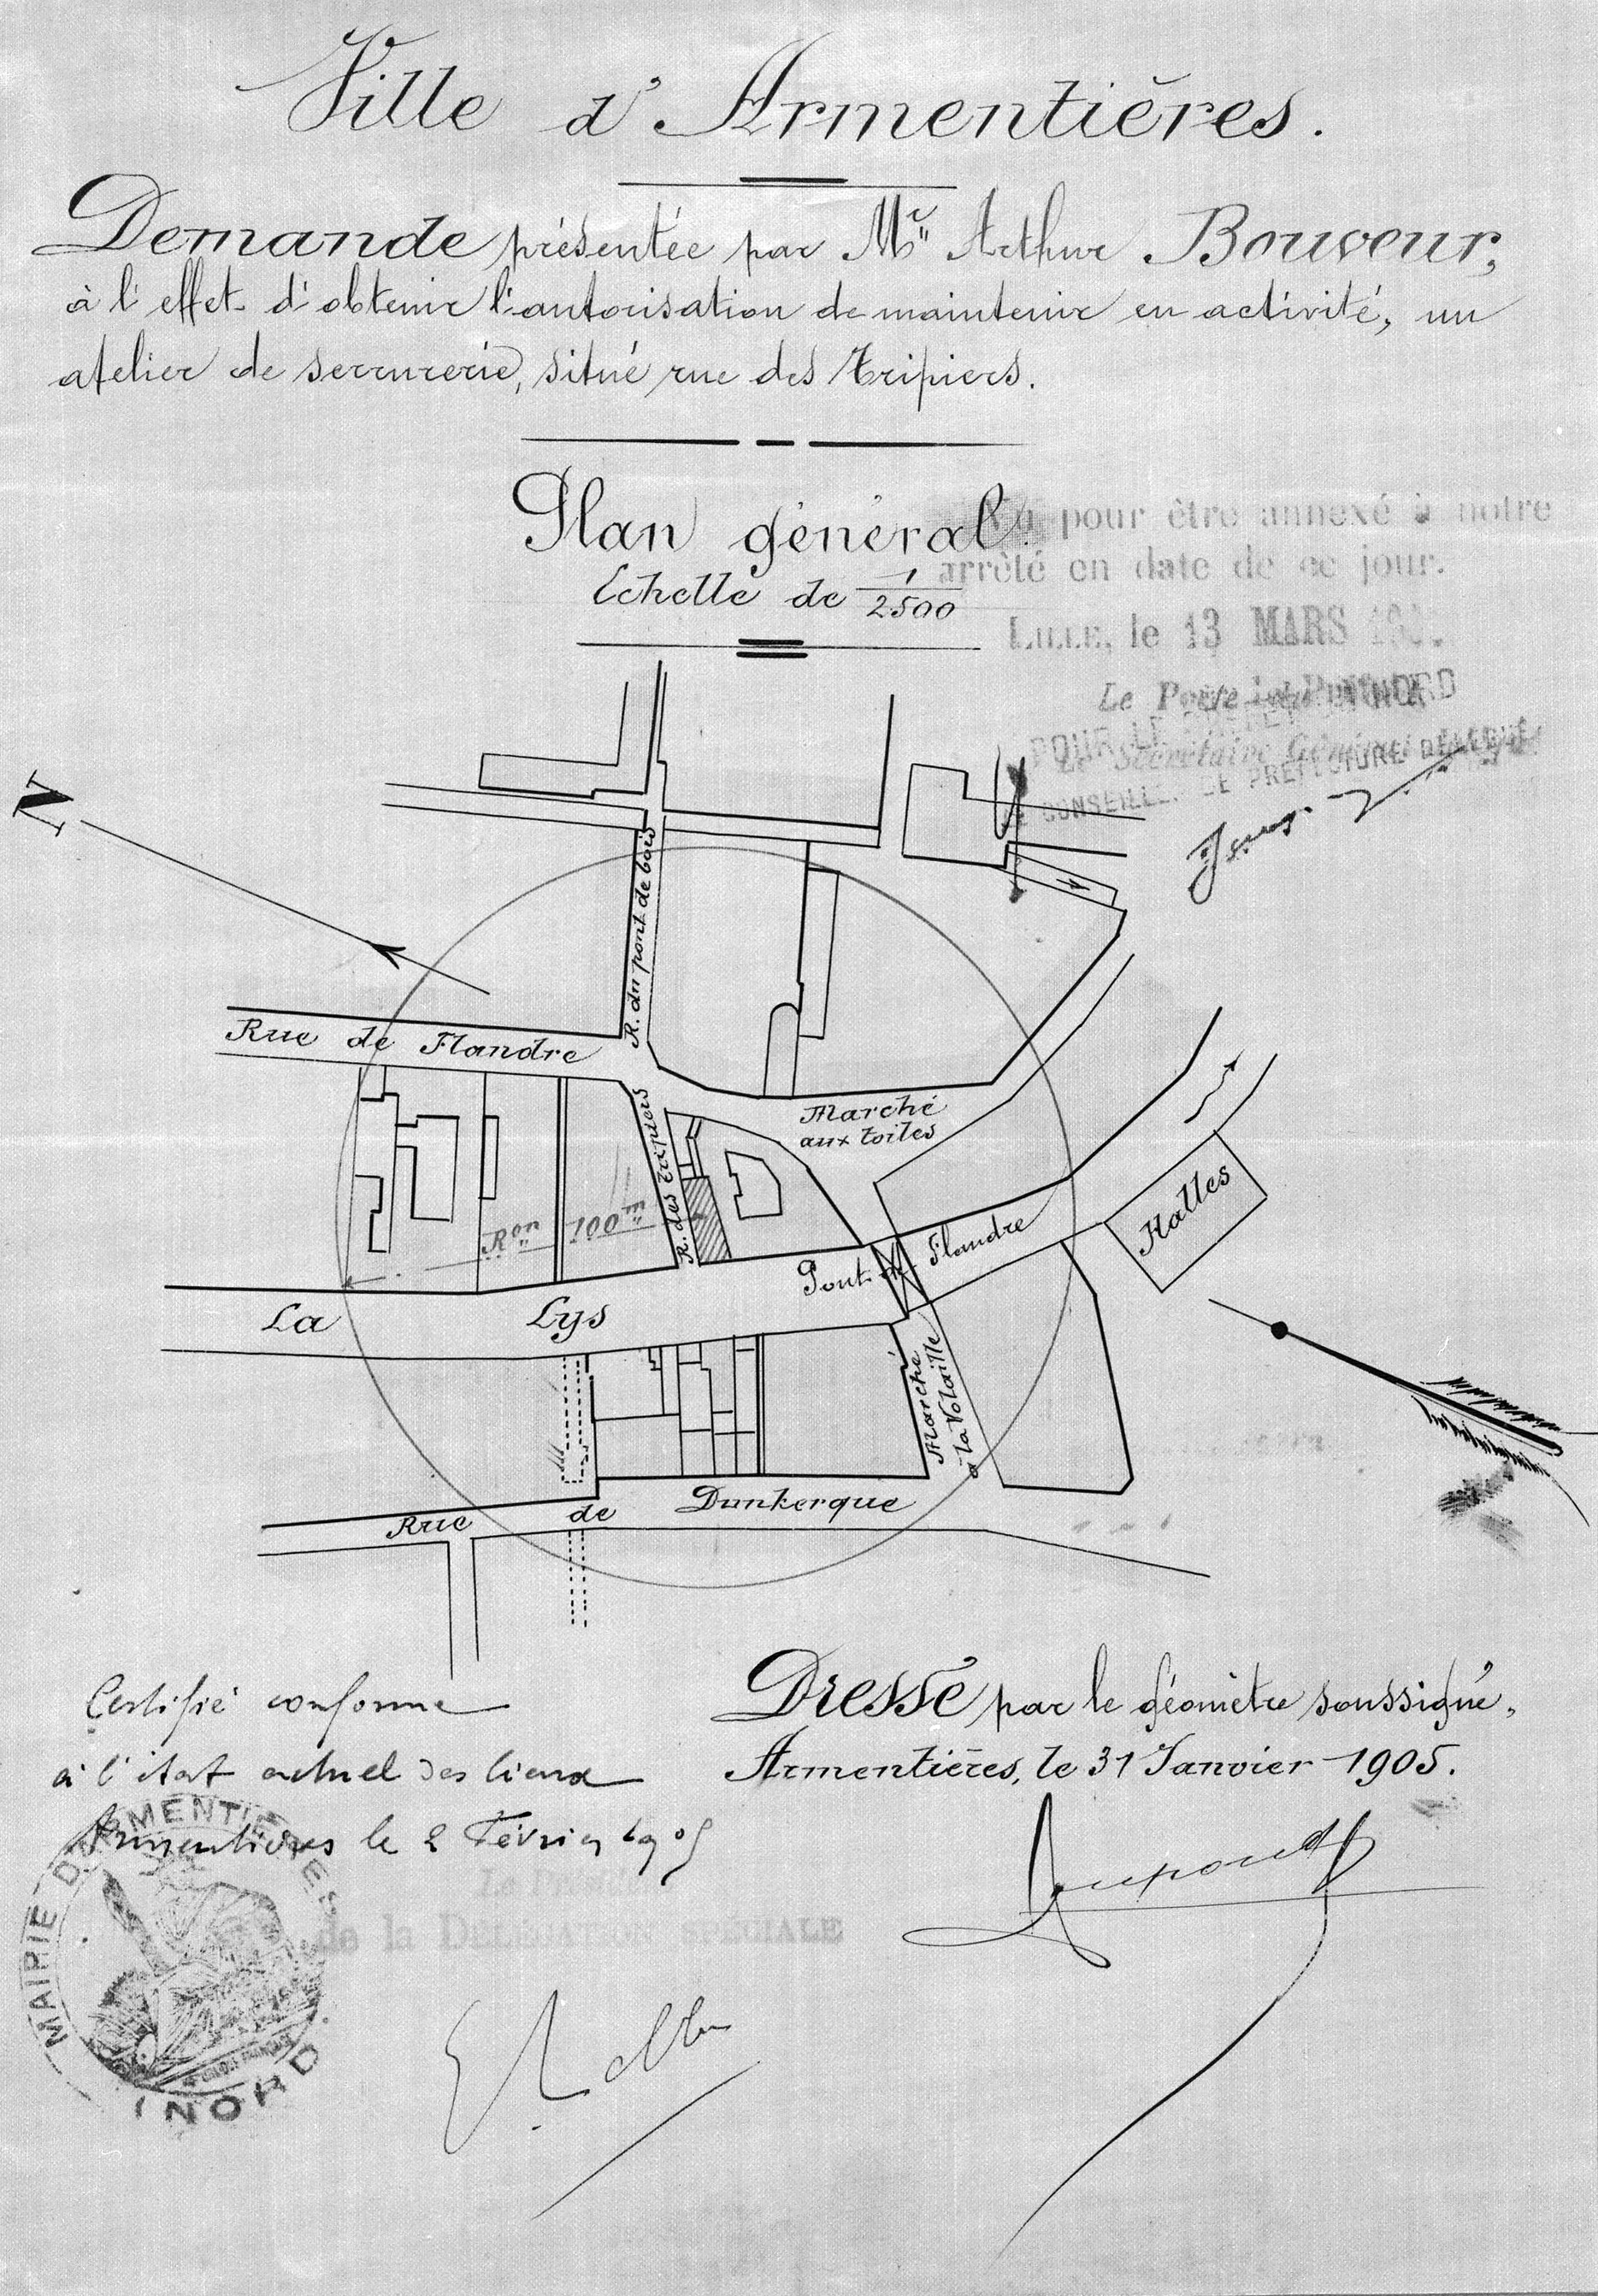 Ville d'Armentières.
Demande présentée par Mr Arthur Bouveur,
à l'effet d'obtenir l'autorisation de maintenir en activité, un
atelier de serrurerie, situé rue des Tripiers.
Plan général
Echelle de 1/2500
Vu pour être annexé à notre
arrêté en date de ce jour.
LILLE, le 13 MARS
Le
POUR LE
Secrétaire Général
CONSEILLER DE PRÉFECTURE DÉLÉGUÉ
N
R. du pont de bois
Rue de Flandre
Marché
aux toiles
R. des Tripiers
Ron 100m
Halles
Pont de Flandre
La Lys
Marché
à la Volaille
Rue de Dunkerque
Certifié conforme
à l'état actuel des lieux
Armentières le 2 Février 1905
Dressé par le géomètre soussigné,
Armentières, le 31 Janvier 1905.
Dupont
Le Président
de la DÉLÉGATION SPÉCIALE
MAIRIE D'ARMENTIÈRES
(NORD)